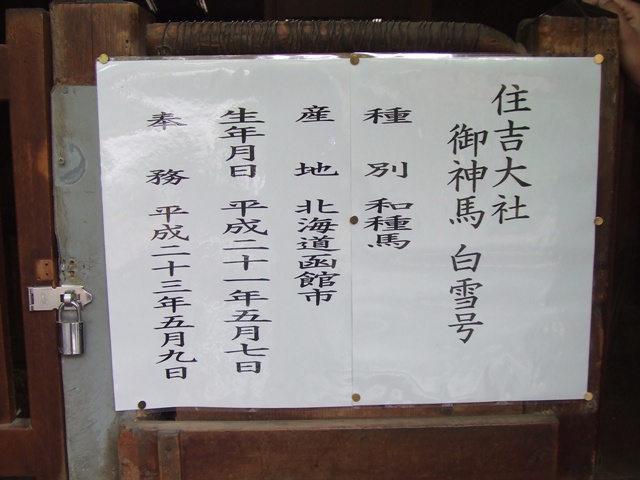 住吉大社
御神馬 白雪号
種別 和種馬
産地 北海道函館市
生年月日 平成二十一年五月七日
奉務 平成二十三年五月九日